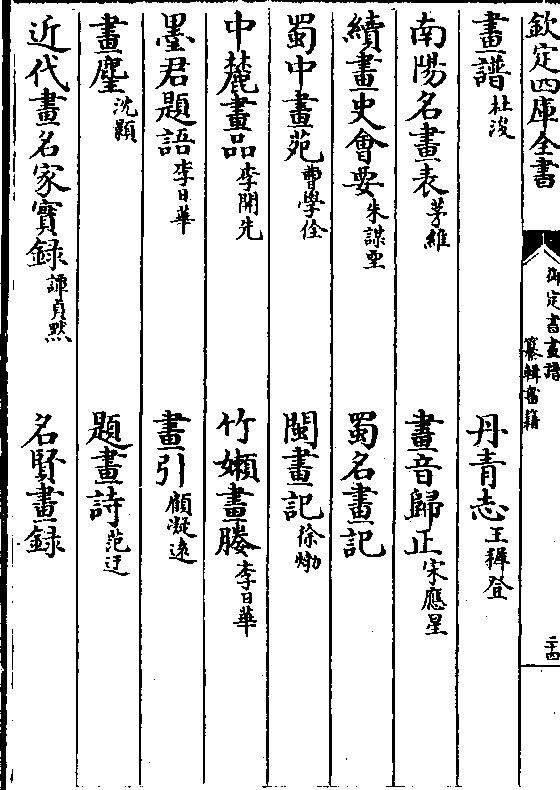 欽定四庫全書
御定書畫譜
纂輯書籍
二十四
畫譜杜浚 丹青志王穉登
南陽名畫表茅維 畫音歸正宋應星
續畫史會要朱謀垔 蜀名畫記
蜀中畫苑曹學佺 閩畫記徐𤊹
中麓畫品李開先 竹嬾畫媵李日華
墨君題語李日華 畫引顧凝遠
畫麈沈顥 題畫詩范迂
近代畫名家實録譚貞默 名賢畫録